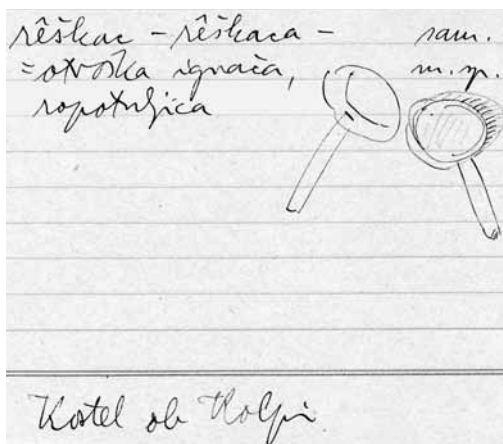 rêškac – rêškaca – sam.
= otroška igrača, m. sp.
ropotuljica
Kostel ob Kolpi